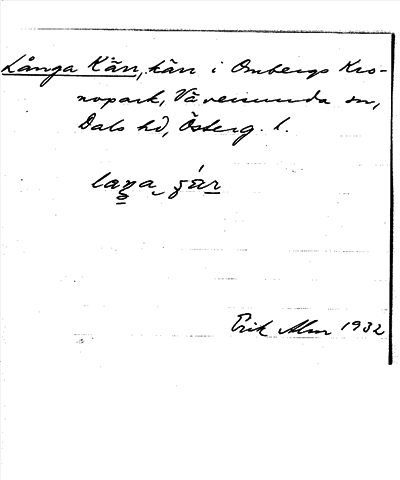 Långa Kärr, kärr i Ombergs Kro-
nopark, Väversunda sn,
Dals hd, Österg. l.
Erik Alm 1932